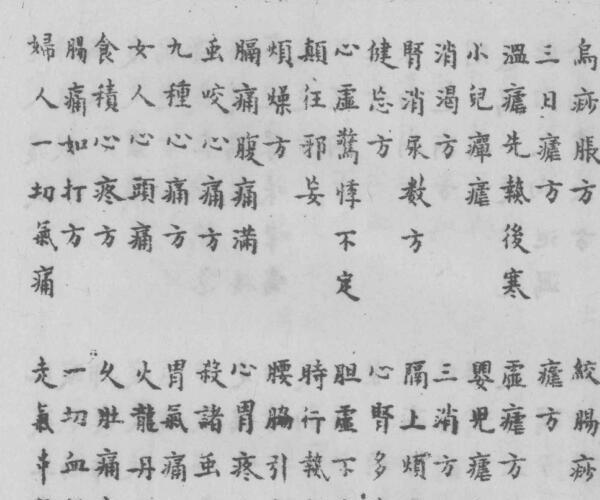 烏痧脹方
三日瘧方
溫瘧先熱後寒
小兒癉瘧
消渴方
腎消尿数方
健忘方
心虛驚悸不定
顛狂邪妄
煩燥方
膈痛腹痛滿
虫咬心痛方
九種心痛方
女人心頭痛
食積心疼方
腸痛如打方
婦人一切氣痛
絞腸痧
瘧方
虛瘧方
嬰兒瘧
三消方
隔上煩
心腎多
胆虛不
時行熱
腰脇引
心胃疼
殺諸虫
胃氣痛
火龍丹
久肚痛
一切血
走氣